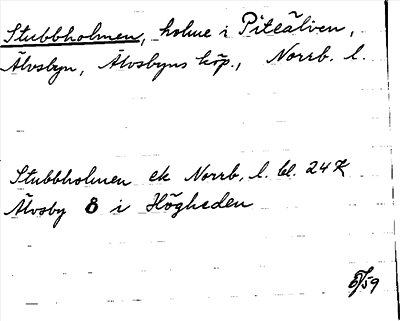 Stubbholmen, holme i Piteälven,
Älvsbyn, Älvsbyns köp., Norrb. l.
Stubbholmen ek Norrb. l. bl. 24 K
Älvsby 8 i Högheden
5/59